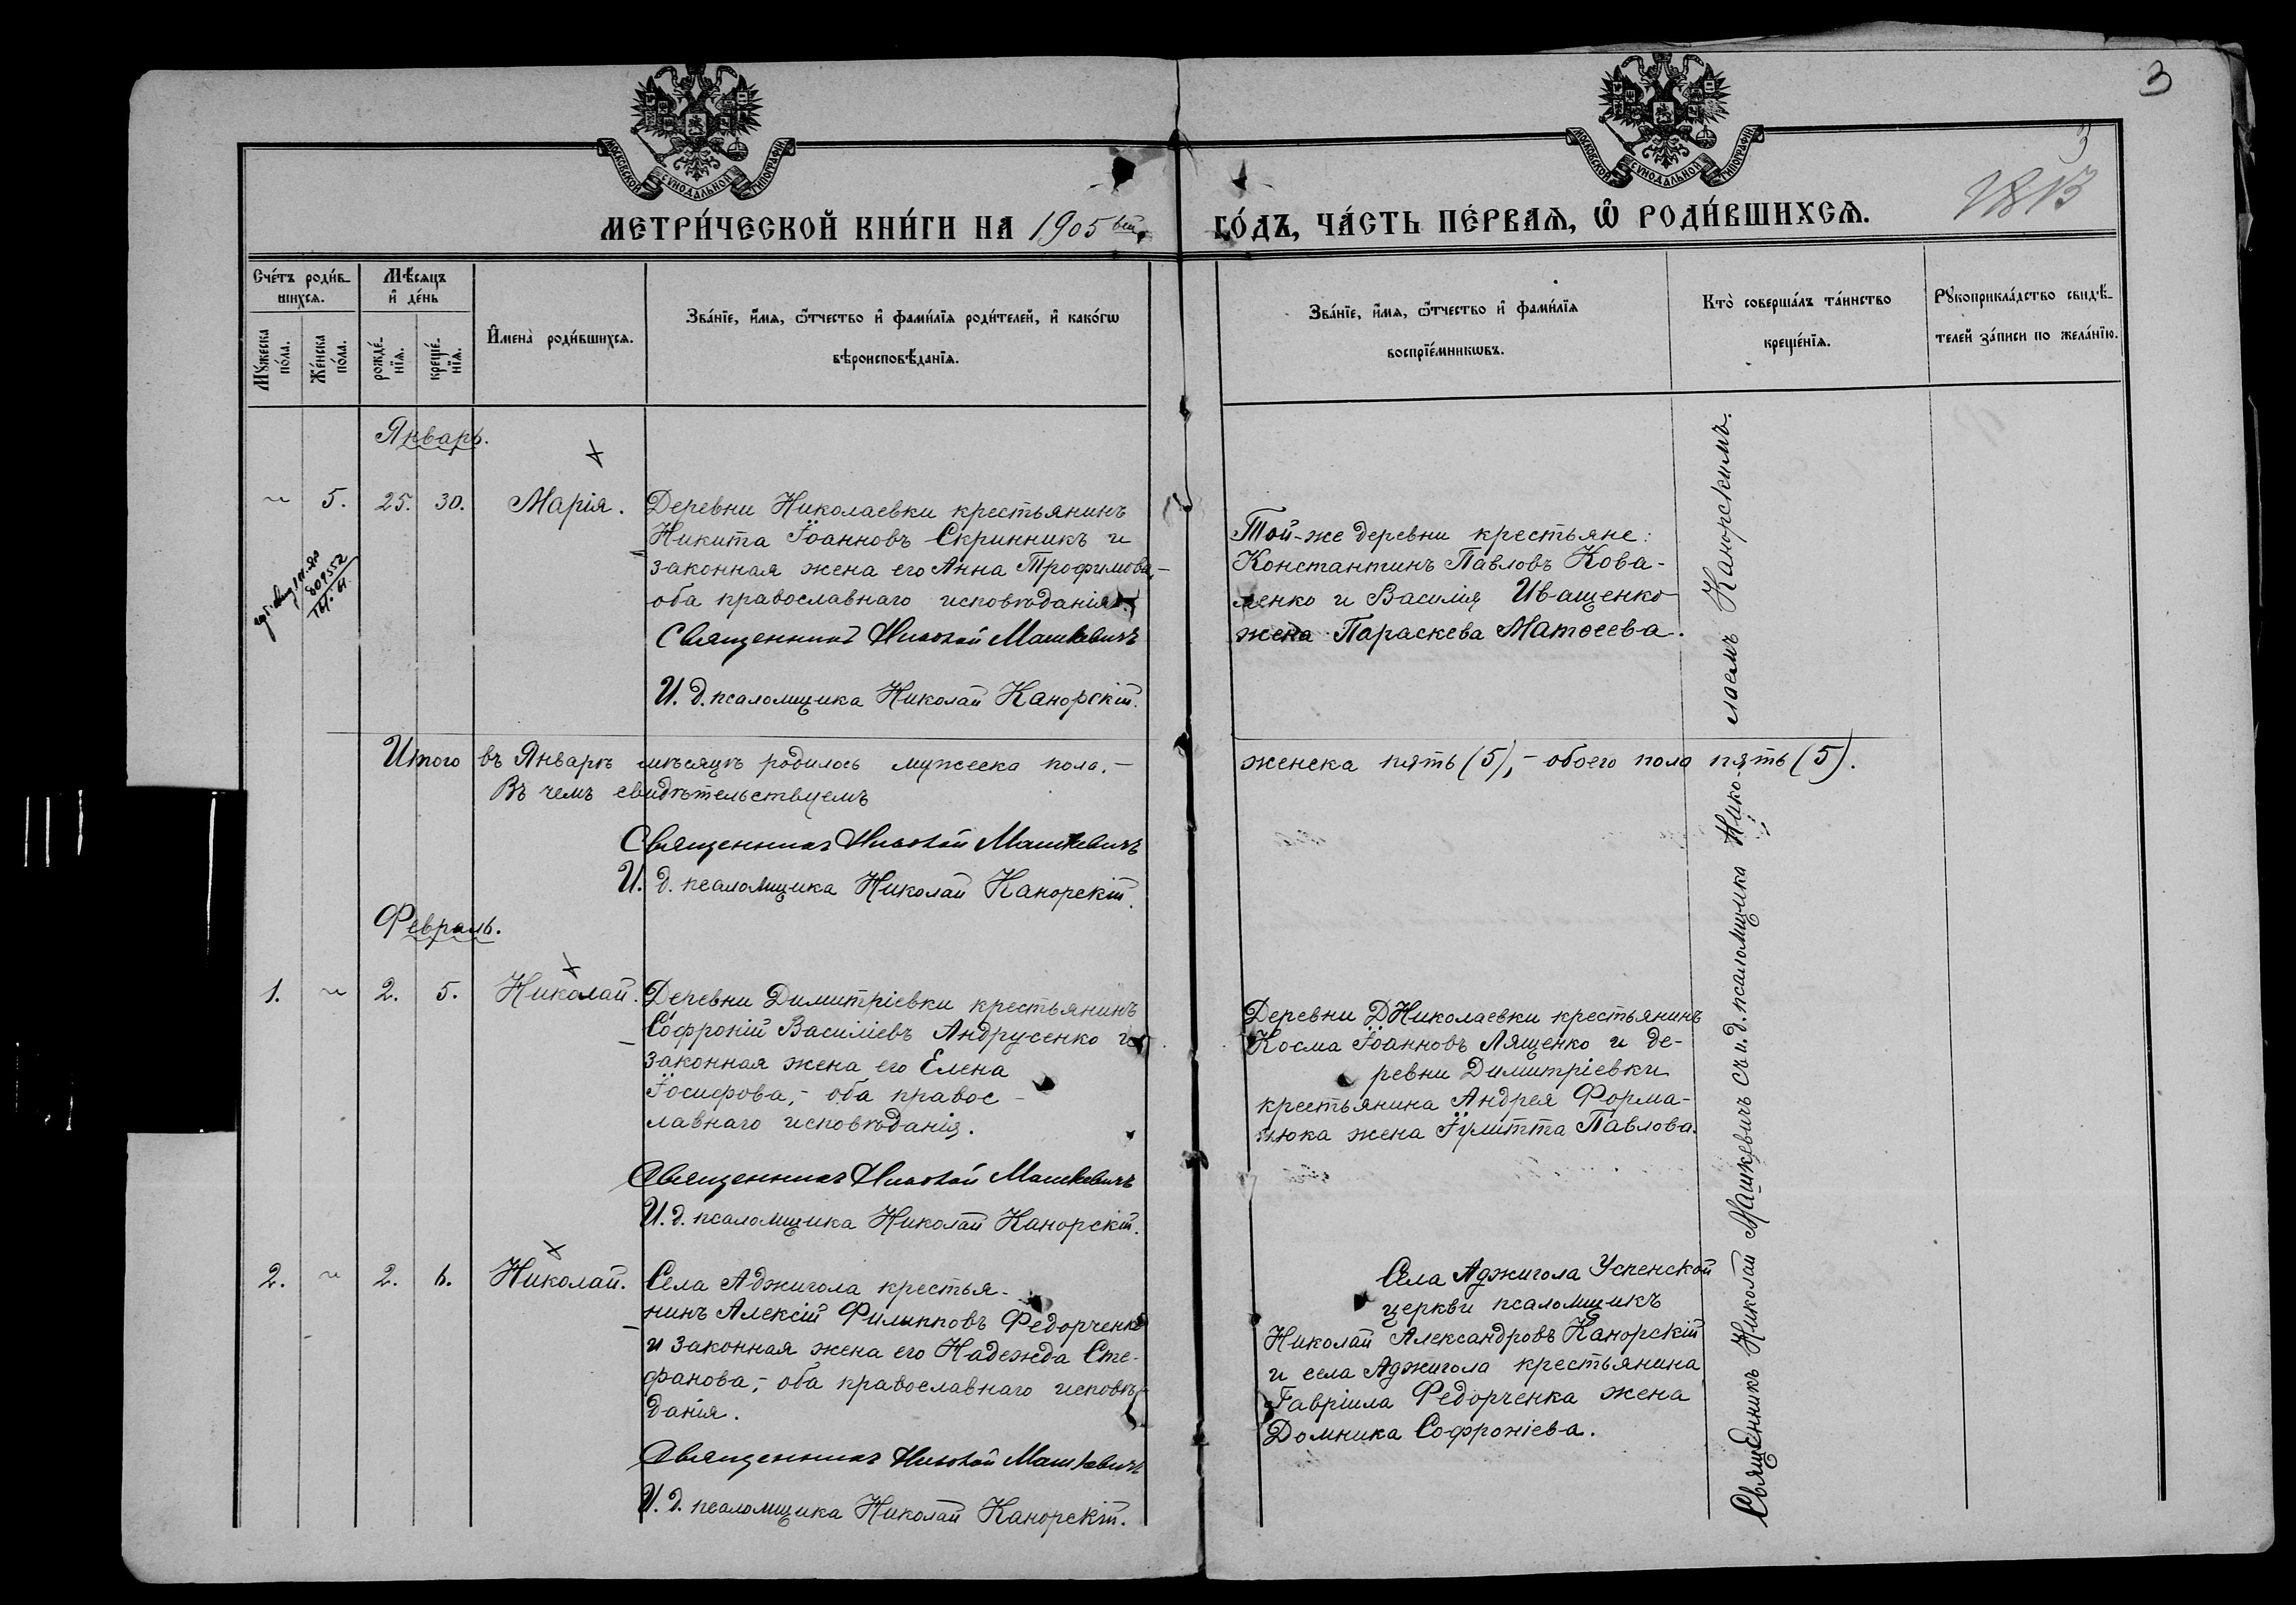 3
МОСКОВСКОЙ СѴНОДАЛЬНОЙ ТИПОГРАФІИ
МОСКОВСКОЙ СѴНОДАЛЬНОЙ ТИПОГРАФІИ
3
МЕТРИ́ЧЕСКОЙ КНИ́ГИ НА 1905 ый
ГО́ДЪ, ЧА́СТЬ ПЕ́РВАѦ, Ѡ҆ РОДИ́ВШИХСѦ.
Сче́тъ роди́в-
шихсѧ.
Мꙋ́жеска
по́ла.
Же́нска
по́ла.
Мѣ́сѧцъ
и҆ де́нь
рожде́-
нїѧ.
креще́-
нїѧ.
И҆мена̀ роди́вшихсѧ.
Зва́нїе, и҆́мѧ, ѻ҆́тчество и҆ фами́лїѧ роди́телей, и҆ како́гѡ
вѣроисповѣ́данїѧ.
Зва́нїе, и҆́мѧ, ѻ҆́тчество и҆ фами́лїѧ
воспрїе́мникѡвъ.
Кто̀ соверша́лъ та́инство
креще́нїѧ.
Рꙋкоприкла́дство свидѣ́-
телей за́писи по жела́нїю.
Январь.
~ 5. 25. 30. Марія.
Деревни Николаевки крестьянинъ
Никита Іоанновъ Скринникъ и
законная жена его Анна Трофимова,-
оба православнаго исповѣданія.
Священникъ Николай Машкевичъ
И. д. псаломщика Николай Канорскій.
Той-же деревни крестьяне:
Константинъ Павловъ Кова-
ленко и Василія Иващенко
жена Параскева Матѳеева.
Итого въ Январѣ мѣсяцѣ родилось мужеска пола. –
женска пять (5), – обоего пола пять (5).
Въ чемъ свидѣтельствуемъ
Священникъ Николай Машкевичъ
И. д. псаломщика Николай Канорскій.
Февраль.
1. ~ 2. 5. Николай.
Деревни Димитріевки крестьянинъ
Софроній Василіевъ Андрусенко и
законная жена его Елена
Іосифова,- оба правос-
лавнаго исповѣданія.
Священникъ Николай Машкевичъ
И. д. псаломщика Николай Канорскій.
Деревни Д Николаевки крестьянинъ
Косма Іоанновъ Лященко и де-
ревни Димитріевки
крестьянина Андрея Форма-
нюка жена Іулитта Павлова.
2. ~ 2. 6. Николай.
Села Аджигола крестья-
нинъ Алексій Филипповъ Федорченко
и законная жена его Надежда Сте-
фанова,- оба православнаго исповѣ-
данія.
Священникъ Николай Машкевичъ
И. д. псаломщика Николай Канорскій.
Села Аджигола Успенской
церкви псаломщикъ
Николай Александровъ Канорскій
и села Аджигола крестьянина
Гавріила Федорченка жена
Домника Софроніева.
Священникъ Николай Машкевичъ съ и. д. псаломщика Нико-лаемъ Канорскимъ.